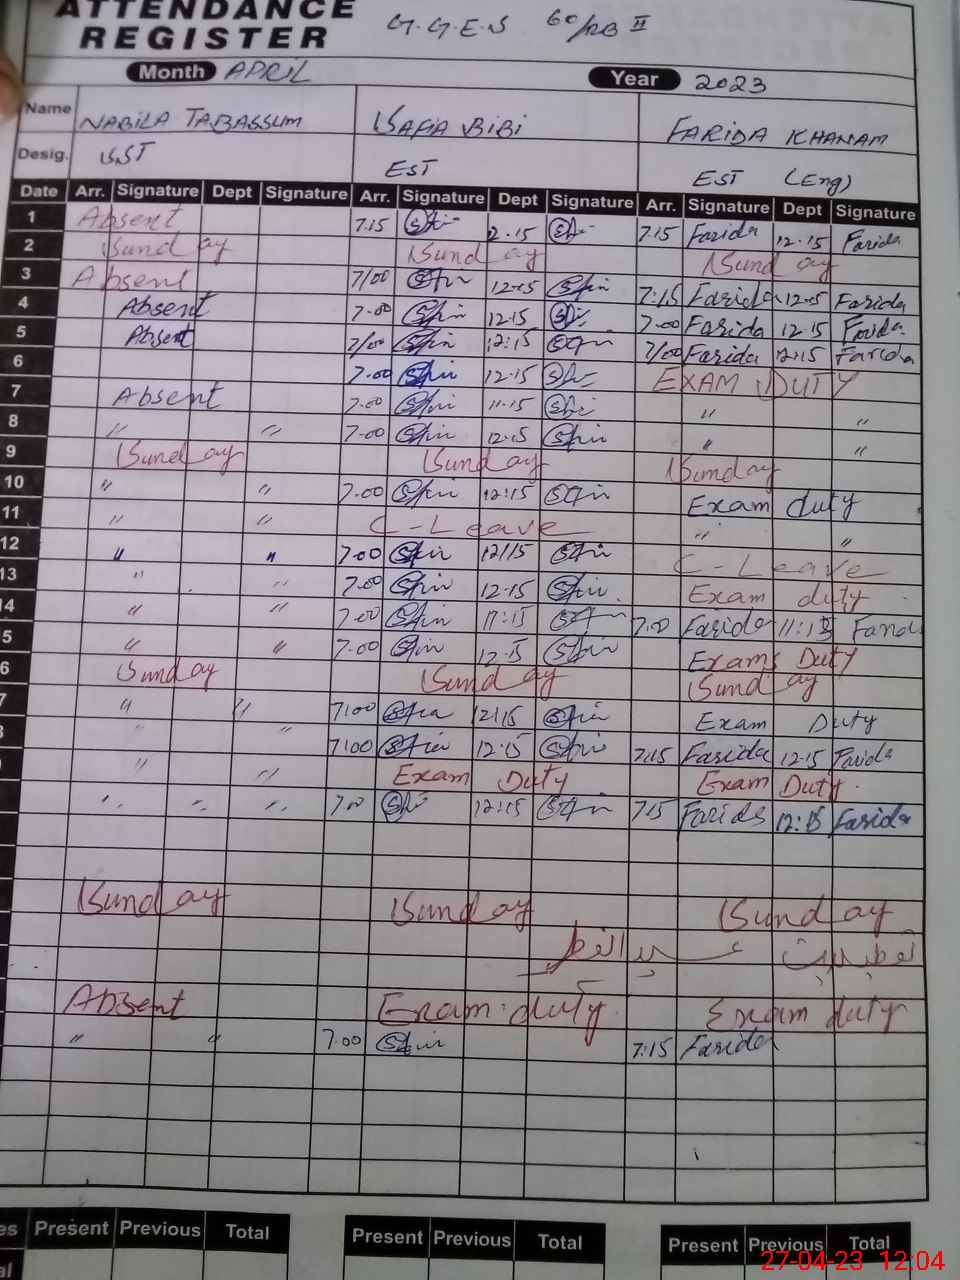 ATTENDANCE G.G.E.S 60/RB II
REGISTER
Month APRIL Year 2023
Name NABILA TABASSUM SAFIA BIBI FARIDA KHANAM
Desig. SST EST EST (Eng)
Date Arr. Signature Dept Signature Arr. Signature Dept Signature Arr. Signature Dept Signature
1 Absent 7.15 12.15 7.15 Farida 12.15 Farida
2 Sunday Sunday Sunday
3 Absent 7/00 12.15 7:15 Farida 12.15 Farida
4 Absent 7.00 12.15 7.00 Farida 12.15 Farida
5 Absent 7/00 12:15 7/00 Farida 12:15 Farida
6 7.00 12.15 EXAM DUTY
7 Absent 7.00 11.15 " "
8 " " 7.00 12.15 " "
9 Sunday Sunday Sunday
10 " " 7.00 12:15 Exam duty
11 " " C-Leave " "
12 " " 7.00 12/15 C-Leave
13 " " 7.00 12.15 Exam duty
14 " " 7.00 11:15 7.00 Farida 11:15 Farida
5 " " 7.00 12.15 Exams Duty
6 Sunday Sunday Sunday
7 " " 7100 12115 Exam Duty
" " 7100 12.15 7.15 Farida 12.15 Farida
" " Exam Duty Exam Duty
" " " 7.00 12:15 7.15 Farida 12:15 Farida
Sunday Sunday Sunday
تعطیلات عید الفطر
Absent Exam duty Exam duty
" " 7.00 7:15 Farida
es Present Previous Total Present Previous Total Present Previous Total
al
27-04-23 12:04